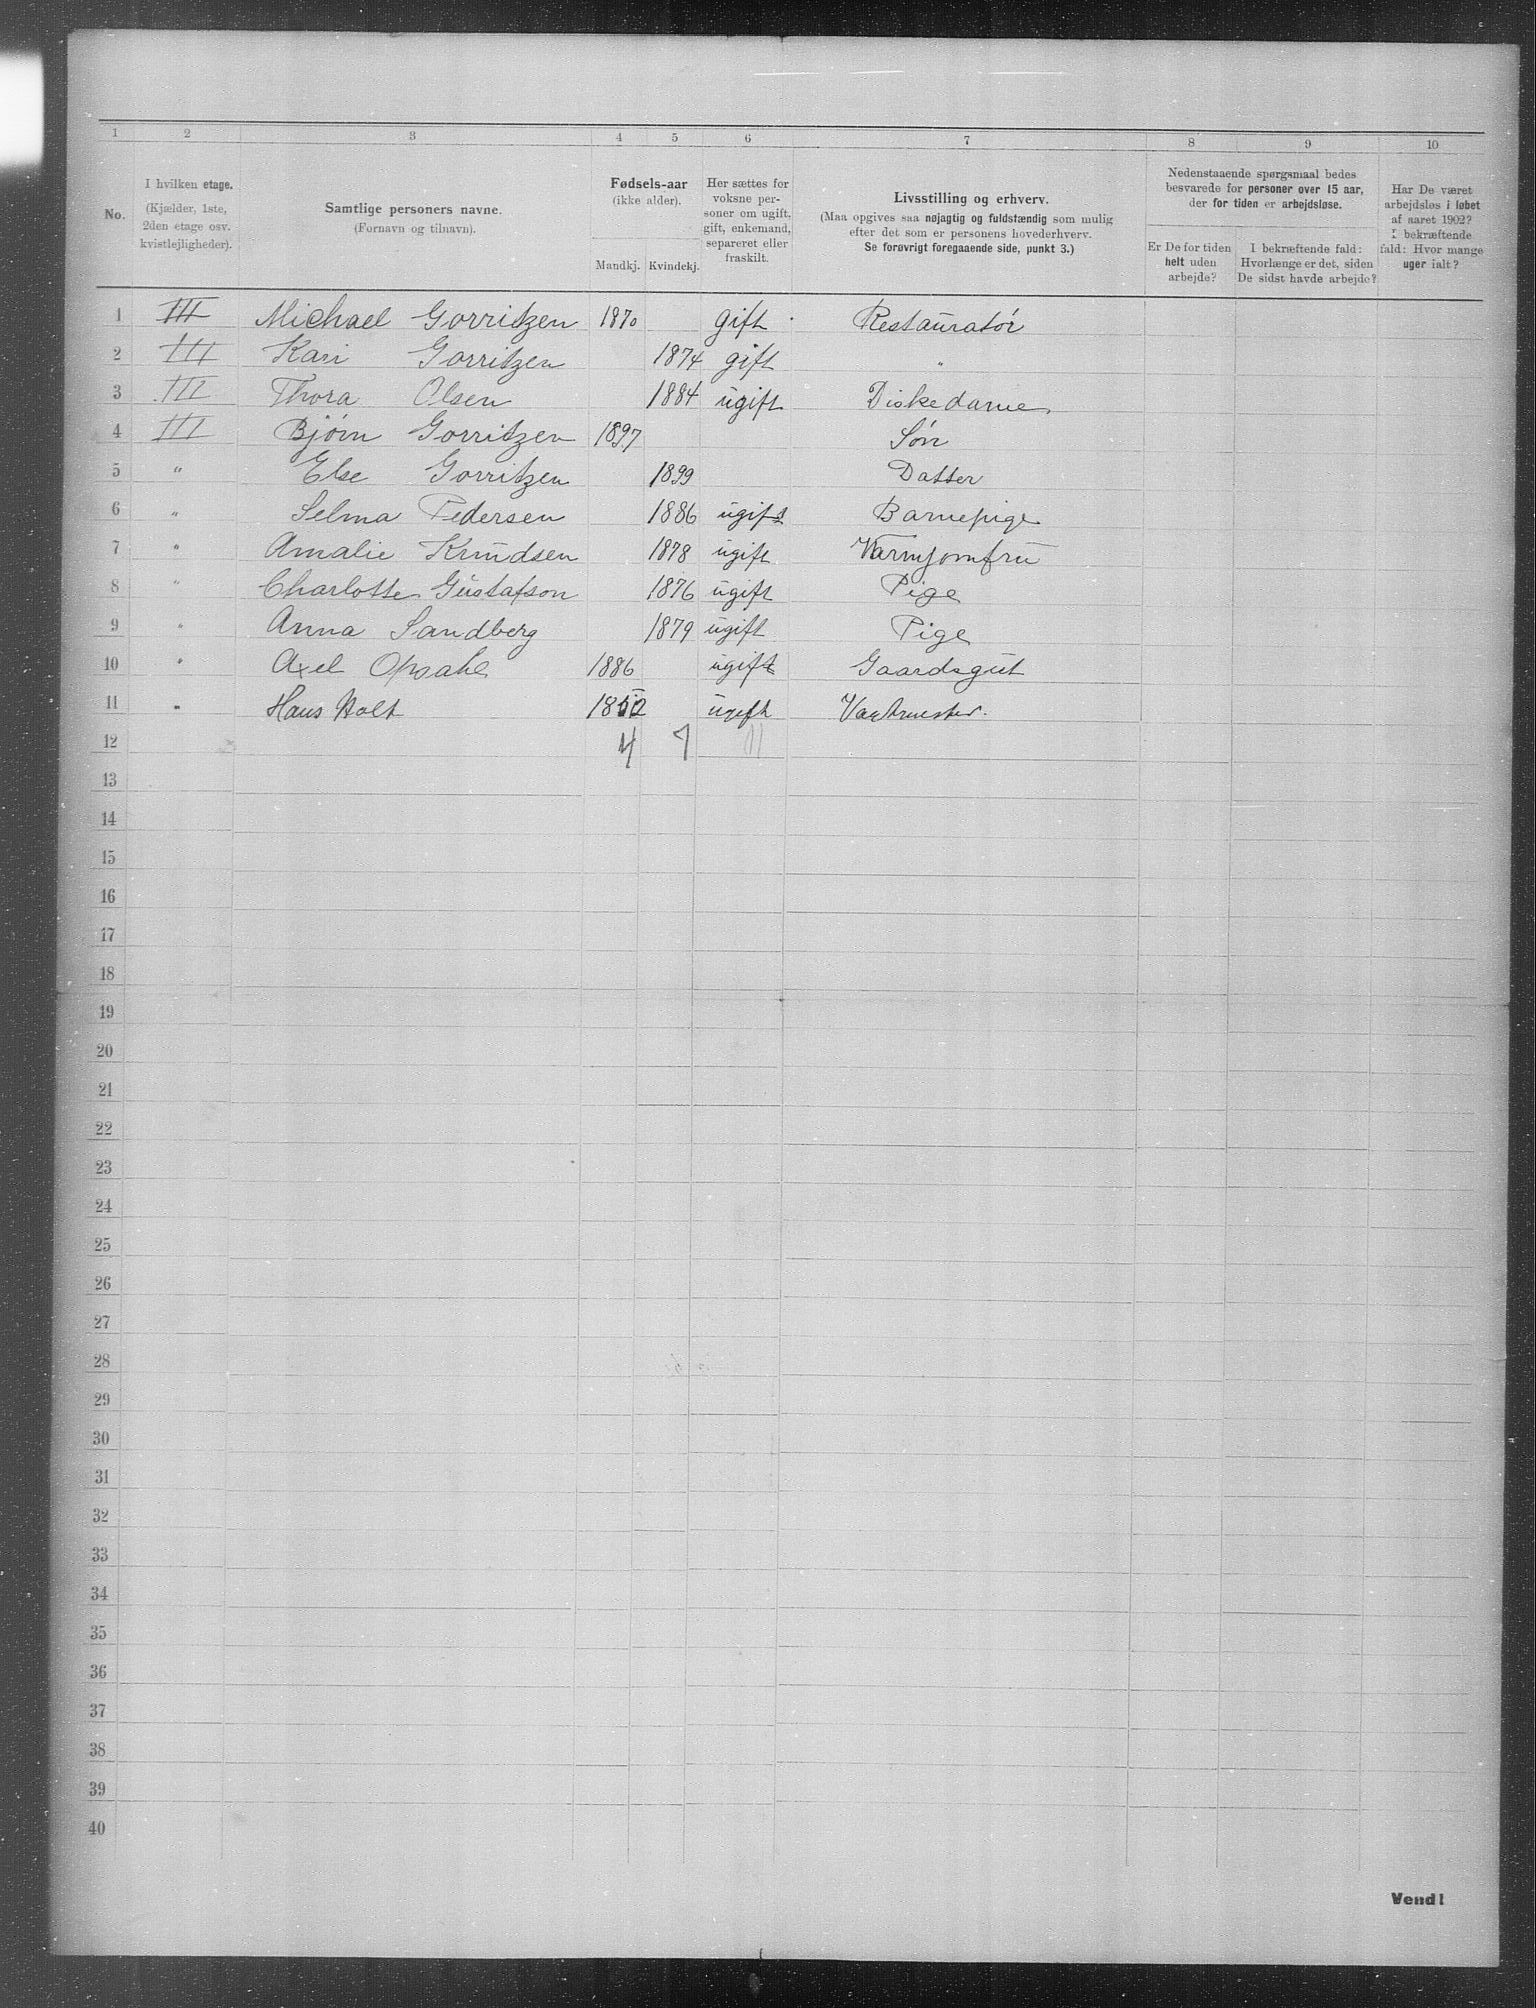 1 2 3 4 5 6 7 8 9 10
No.
I hvilken etage.
(Kjælder, 1ste,
2den etage osv.
kvistlejligheder).
Samtlige personers navne.
(Fornavn og tilnavn).
Fødsels-aar
(ikke alder).
Mandkj. Kvindekj.
Her sættes for
voksne per-
soner om ugift,
gift, enkemand,
separeret eller
fraskilt.
Livsstilling og erhverv.
(Maa opgives saa nøjagtig og fuldstændig som mulig
efter det som er personens hovederhverv.
Se forøvrigt foregaaende side, punkt 3.)
Nedenstaaende spørgsmaal bedes
besvarede for personer over 15 aar,
der for tiden er arbejdsløse.
Er De for tiden
helt uden
arbejde?
I bekræftende fald:
Hvorlænge er det, siden
De sidst havde arbejde?
Har De været
arbejdsløs i løbet
af aaret 1902?
I bekræftende
fald: Hvor mange
uger ialt?
1 III Michael Gorritzen 1870 gift Restauratør
2 III Kari Gorritzen 1874 gift "
3 III Thora Olsen 1884 ugift Diskedame
4 III Bjørn Gorritzen 1897 Søn
5 " Else Gorritzen 1899 Datter
6 " Selma Pedersen 1886 ugift Barnepige
7 " Amalie Knudsen 1878 ugift Varmjomfru
8 " Charlotte Gustafson 1876 ugift Pige
9 " Anna Sandberg 1879 ugift Pige
10 " Axel Opsahl 1886 ugift Gaardsgut
11 " Hans Holt ugift Vagtmester.
12 4 7 11
13
14
15
16
17
18
19
20
21
22
23
24
25
26
27
28
29
30
31
32
33
34
35
36
37
38
39
40
Vend!